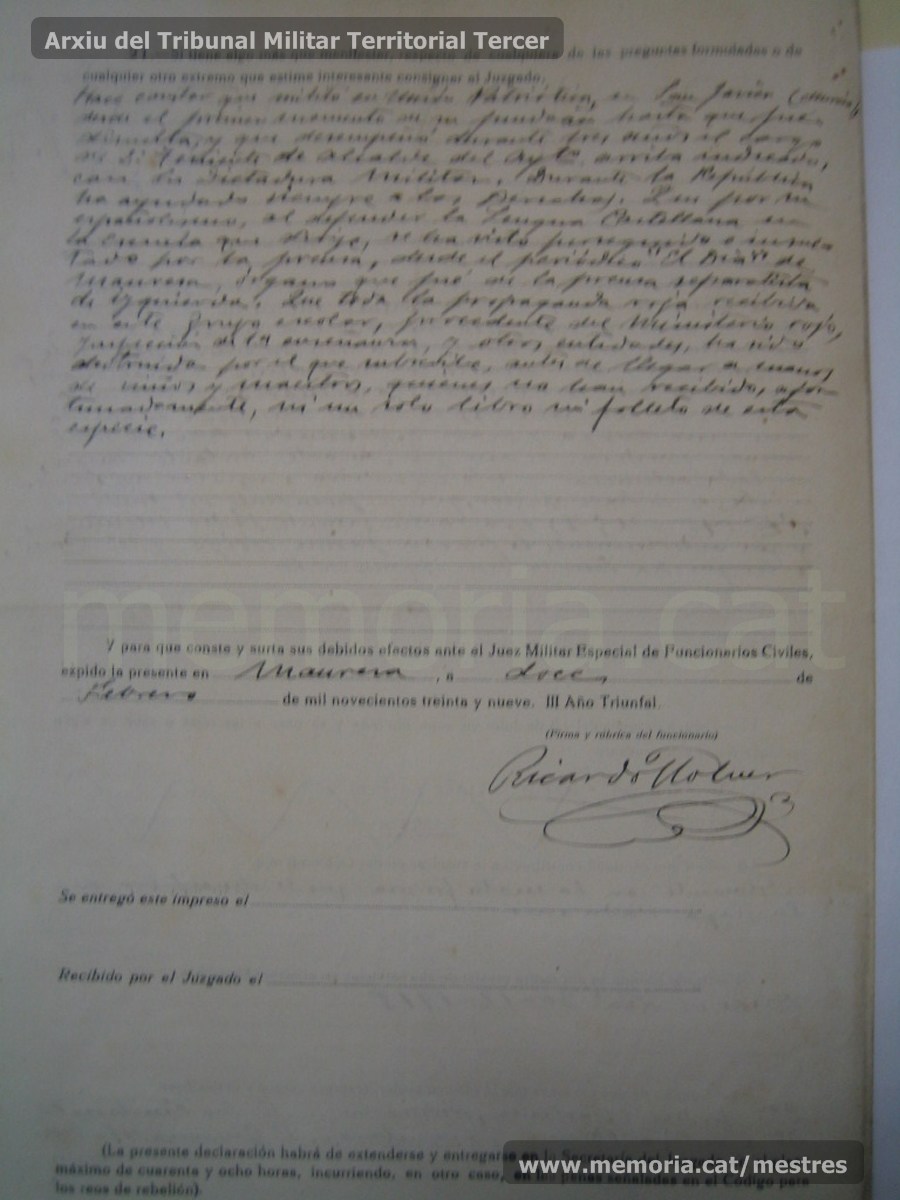 Arxiu del Tribunal Militar Territorial Tercer
tiene algo más que manifestar, respecto de cualquiera de las preguntas formuladas o de
cualquier otro extremo que estime interesante consignar al Juzgado.
Hace constar que militó en Unión Patriótica, en San Javier (Murcia),
desde el primer momento de su fundación hasta que fue
disuelta, y que desempeñó durante tres años el cargo
de 2º Teniente de Alcalde del Aytº arriba indicado,
con la Dictadura Militar. Durante la República
ha ayudado siempre a las Derechas. Que por su
españolismo, al defender la Lengua Castellana en
la Escuela que dirije, se ha visto perseguido e insul
tado por la prensa, desde el periódico "El Dia" de
Manresa, órgano que fué de la prensa separatista
de izquierda. Que toda la propaganda roja recibida
en este grupo escolar, procedente del Ministerio rojo,
Inspección de 1ª enseñanza, y otras entidades, ha sido
destruida por el que subscribe, antes de llegar a manos
de niños y maestros, quienes no han recibido, afor
tunadamente, ni un solo libro ni folleto de esta
especie.
memoria.cat
Y para que conste y surta sus debidos efectos ante el Juez Militar Especial de Funcionarios Civiles,
expido la presente en Manresa, a doce, de
Febrero de mil novecientos treinta y nueve. III Año Triunfal.
(Firma y rúbrica del funcionario)
Ricardo
Se entregó este impreso el
Recibido por el Juzgado el
(La presente declaración habrá de extenderse y entregarse en la Secretaría del
máximo de cuarenta y ocho horas, incurriendo, en otro caso, en las penas señaladas en el Código para
los reos de rebelión).
www.memoria.cat/mestres